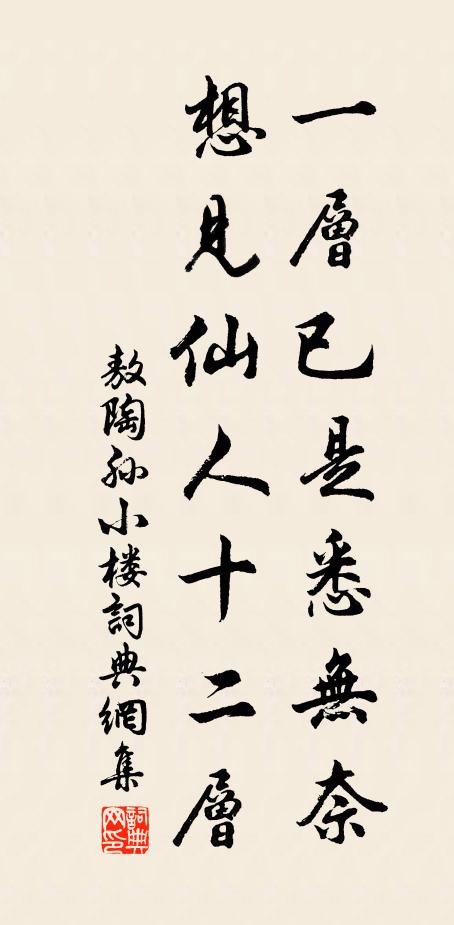 一層已是悉無奈
想見仙人十二層
敖陶孙小楼詞典網集
詞典網印